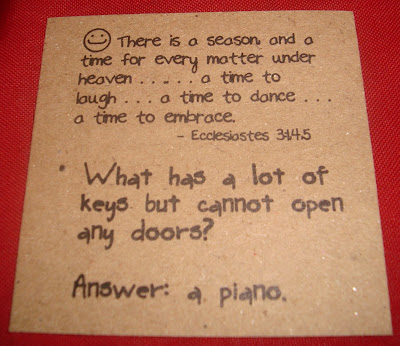 There is a season, and a
time for every matter under
heaven . . . . . a time to
laugh . . . a time to dance . . .
a time to embrace.
- Ecclesiastes 3:1,4,5
What has a lot of
keys but cannot open
any doors?
Answer: a piano.